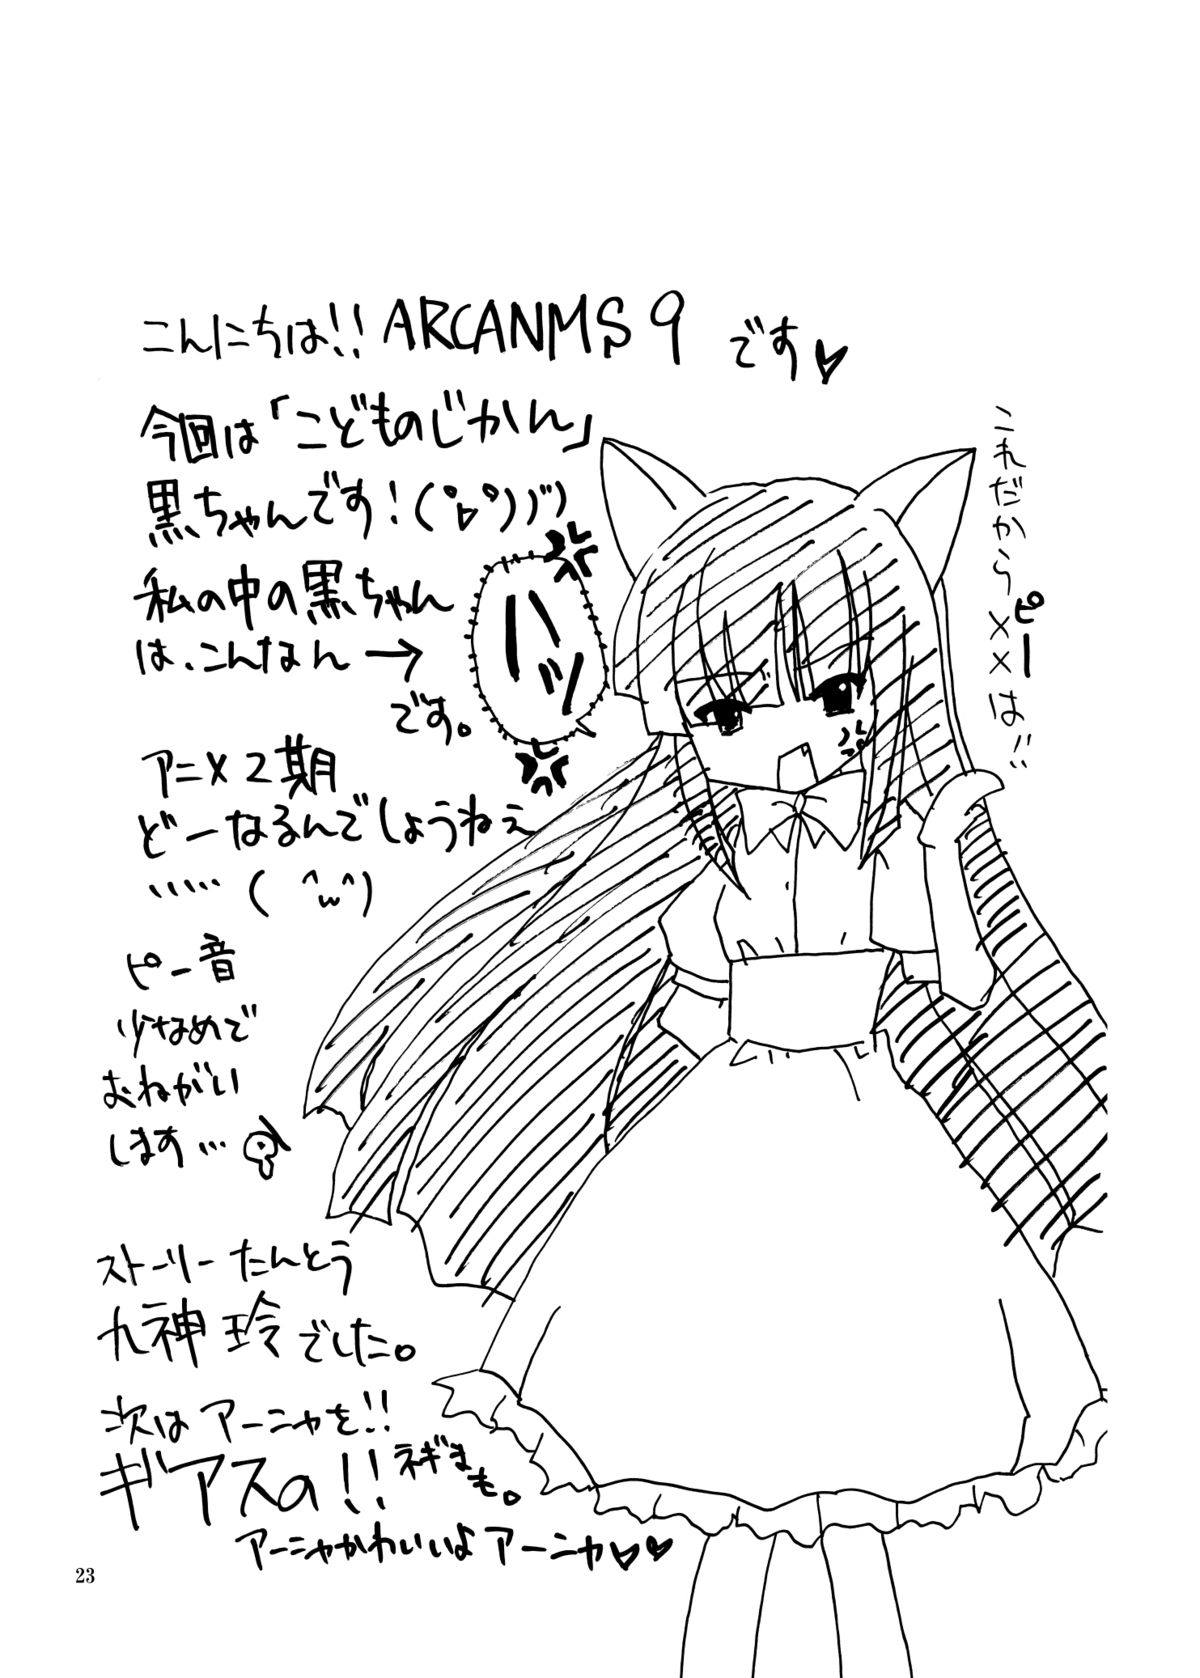 こんにちは!! ARCANMS 9 です♥
今回は「こどものじかん」
黒ちゃんです!(°▽°)ノ))
私の中の黒ちゃん
は、こんなん→
です。
アニメ2期
どーなるんでしょうねぇ
・・・・・( ^w^)
ピー音
少なめで
おねがい
します…
ストーリーたんとう
九神 玲でした。
次はアーニャを!!
ギアスの!! ネギまも。
アーニャかわいいよアーニャ♥♥
ハッ
これだから××は!!
ピー
23